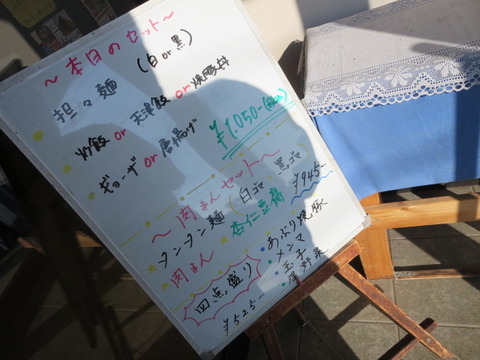 ～本日のセット～
担々麺 (白or黒)
炒飯 or 天津飯 or 焼豚丼
ギョーザ or 唐揚げ
¥1,050-(税込)
～肉まんセット～
タンタン麺 (白ゴマ 黒ゴマ
肉まん 杏仁豆腐 ¥945-
四点盛り
¥525-
あぶり焼豚
メンマ
玉子